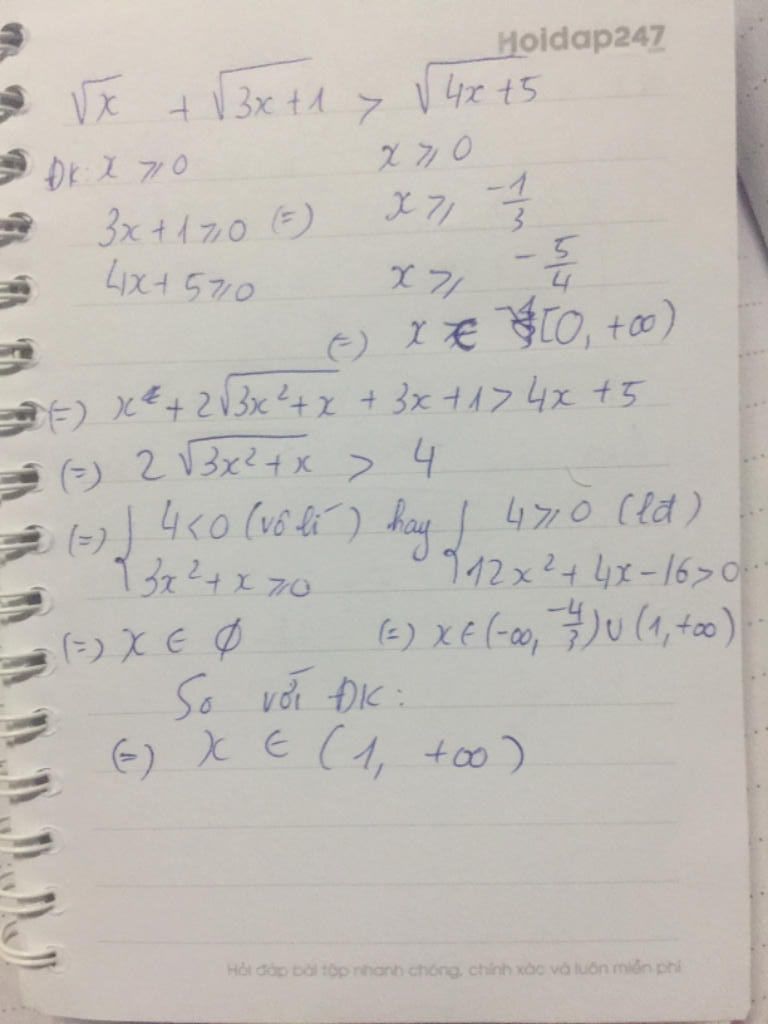 Hoidap247
√x + √(3x+1) > √(4x+5)
ĐK: x ⩾ 0 x ⩾ 0
3x+1 ⩾ 0 (=) x ⩾ -1/3
4x+5 ⩾ 0 x ⩾ -5/4
(=) x ∈ [0, +∞)
(=) x + 2√(3x²+x) + 3x+1 > 4x+5
(=) 2√(3x²+x) > 4
(=) { 4<0 (vô lí) hay { 4 ⩾ 0 (lđ)
3x²+x ⩾ 0 12x²+4x-16>0
(=) x ∈ ∅ (=) x ∈ (-∞, -4/3) ∪ (1, +∞)
So với ĐK:
(=) x ∈ (1, +∞)
Hỏi đáp bài tập nhanh chóng, chính xác và luôn miễn phí